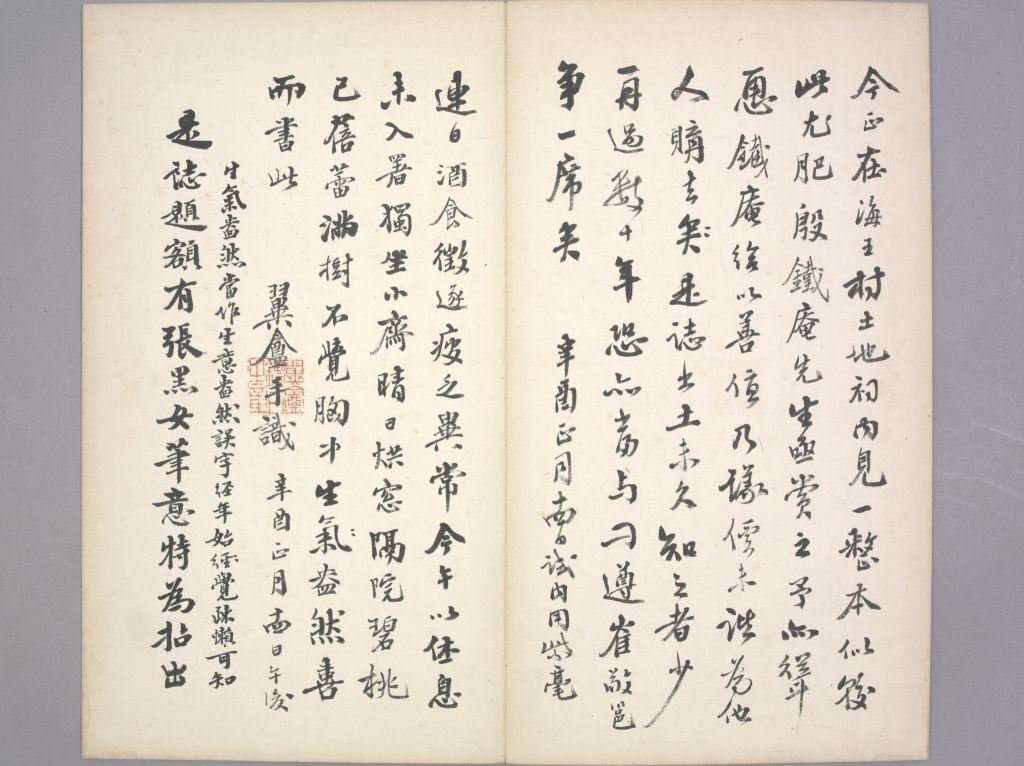 今正在海王村土地祠內見一整本似較
此尤肥殷鐵庵先生亟賞之予亦
慝鐵庵給以善值乃儓未諧為他
人購去矣是誌出土未久知之者少
再過數十年恐亦當与刁遵崔敬邕
爭一席矣 辛酉正月 試內用紫毫
連日酒食徵逐疲乏異常今午以休息
未入署獨坐小齋晴日烘窓隔院碧桃
已蓓蕾滿樹不覺胸中生氣盎然喜
而書此 翼盦手識 辛酉正月 日午後
生氣盎然當作生意盎然誤字經年始經覺疎懶可知
是誌題額有張黑女筆意特為拈出